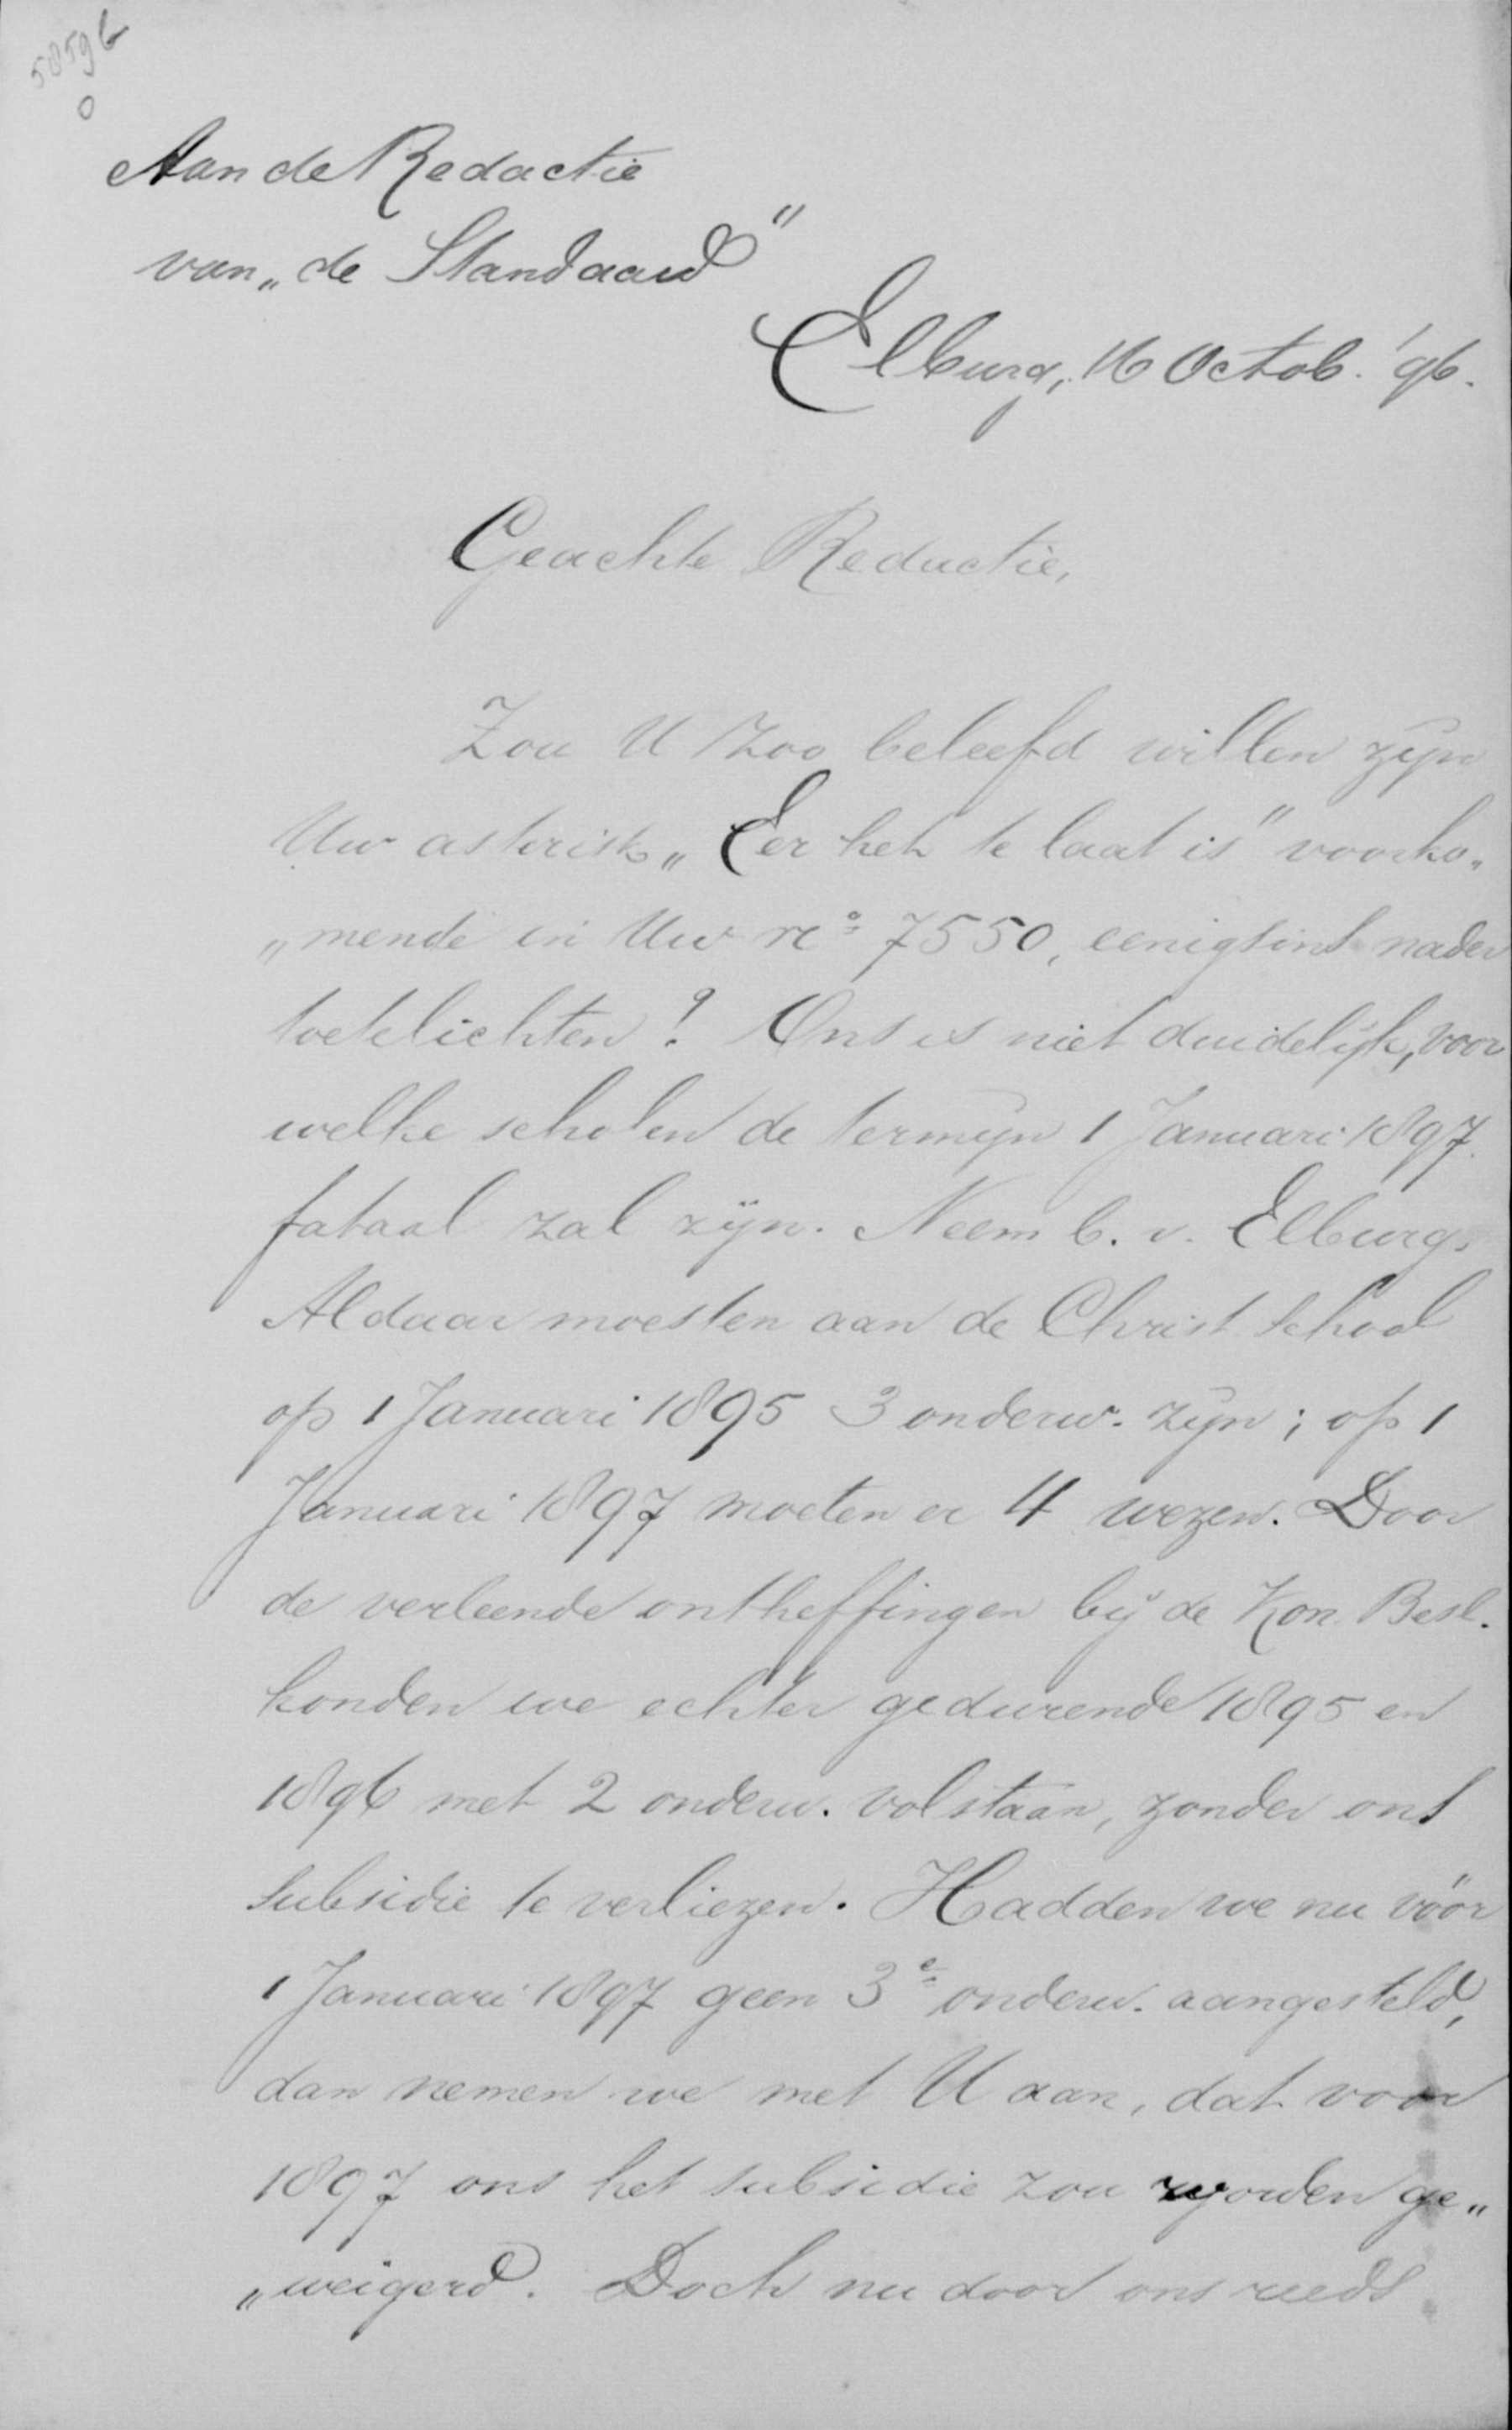 5859b
0
Aan de Redactie
van „de Standaard"
Elburg, 16 Octob. '96.
Geachte Redactie,
Zou U zoo beleefd willen zijn
Uw asterisk „Eer het te laat is" voorko„
„mende in Uw no 7550, eenigsins nader
toetelichten? Ons is niet duidelijk, voor
welke scholen de termijn 1 Januari 1897
fataal zal zijn. Neem b. v. Elburg.
Aldaar moesten aan de Christ. school
op 1 Januari 1895 3 onderw. zijn; op 1
Januari 1897 moeten er 4 wezen. Door
de verleende ontheffingen bij de Kon. Besl.
konden we echter gedurende 1895 en
1896 met 2 onderw. volstaan, zonder ons
subsidie te verliezen. Hadden we nu vóór
1 Januari 1897 geen 3e onderw. aangesteld,
dan nemen we met U aan, dat voor
1897 ons het subsidie zou worden ge„
„weigerd. Doch nu door ons reeds